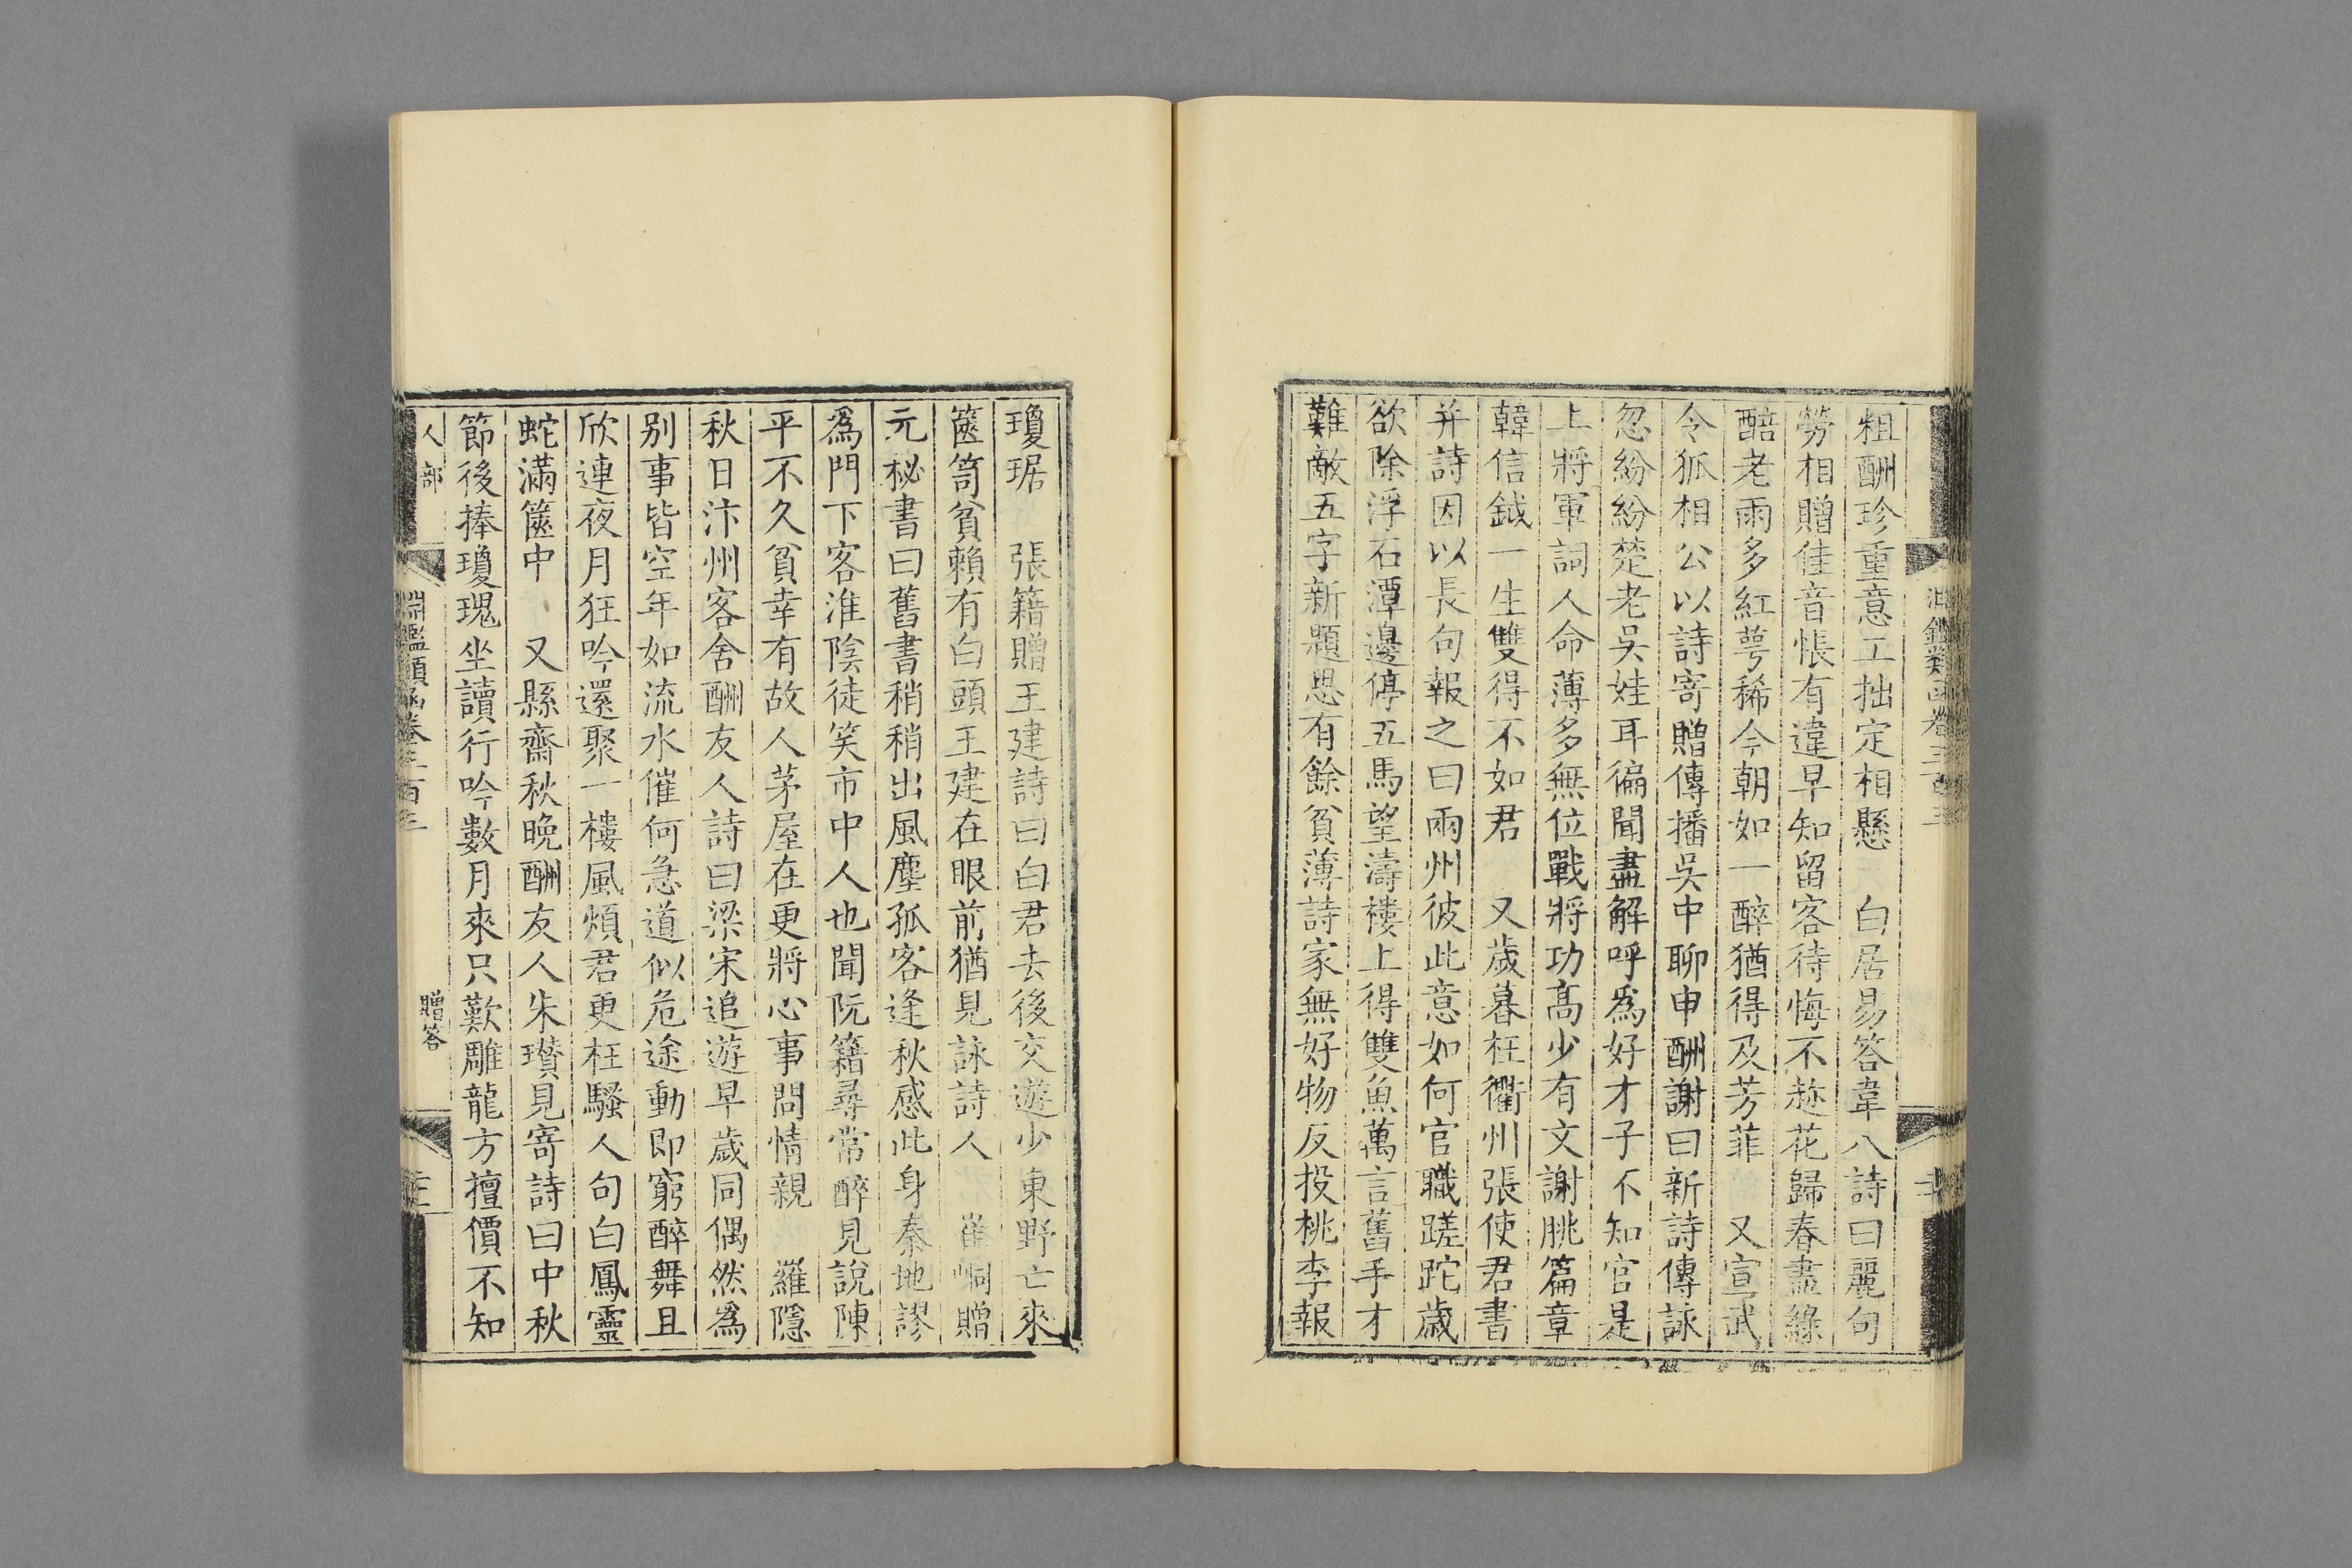 粗酬珍重意工拙定相懸　白居易答韋八詩曰麗句
勞相贈佳音悵有違早知留客待悔不趂花歸春盡綠
醅老雨多紅萼稀今朝如一醉猶得及芳菲　又宣武
令狐相公以詩寄贈傳播吳中聊申酬謝曰新詩傳詠
忽紛紛楚老吳娃耳徧聞盡解呼爲好才子不知官是
上將軍詞人命薄多無位戰將功髙少有文謝朓篇章
韓信鉞一生雙得不如君　又歲暮枉衢州張使君書
并詩因以長句報之曰兩州彼此意如何官職蹉跎歲
欲除浮石潭邊停五馬望濤樓上得雙魚萬言舊手才
難敵五字新題思有餘貧薄詩家無好物反投桃李報
瓊琚　張籍贈王建詩曰白君去後交遊少東野亡來
篋笥貧賴有白頭王建在眼前猶見詠詩人　崔峒贈
元秘書曰舊書稍稍出風塵孤客逢秋感此身秦地謬
爲門下客淮陰徒笑市中人也聞阮籍尋常醉見說陳
平不久貧幸有故人茅屋在更將心事問情親　羅隱
秋日汴州客舍酬友人詩曰梁宋追遊早歲同偶然爲
别事皆空年如流水催何急道似危途動即窮醉舞且
欣連夜月狂吟還聚一樓風煩君更枉騷人句白鳳靈
蛇滿篋中　又縣齋秋晚酬友人朱瓚見寄詩曰中秋
節後捧瓊瑰坐讀行吟數月來只歎雕龍方擅價不知
人部
淵鑑類函卷三百三
贈答